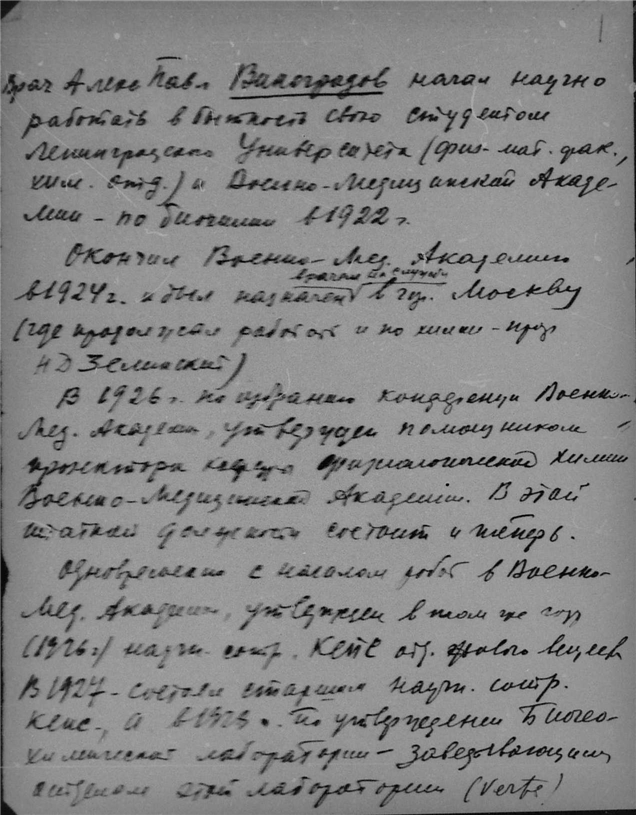 Врач Алекс Павл Виноградов начал научно
работать в бытность свою студентом
Ленинградского Университета (физ-мат. фак.,
хим. отд.) и Военно-Медицинской Акаде-
мии - по биохимии в 1922 г.
Окончил Военно-Мед. Академию
врачом на службу
в 1924 г. и был назначен в гор. Москву
(где продолжал работать и по химии - проф
НД Зелинский)
В 1926 г. по избранию конференции Военно-
Мед. Академии, утвержден помощником
прозектора кафедры физиологической химии
Военно-Медицинской Академии. В этой
штатной должности состоит и теперь.
Одновременно с началом работ в Военно-
Мед. Академии, утвержден в том же году
(1926 г) научн. сотр. КЕПС отд. живого вещев
В 1927 - состоял старшим научн. сотр.
Кепс-, а в по утверждении Биогео-
химической лаборатории - Заведывающим
отделом этой лаборатории (verte!